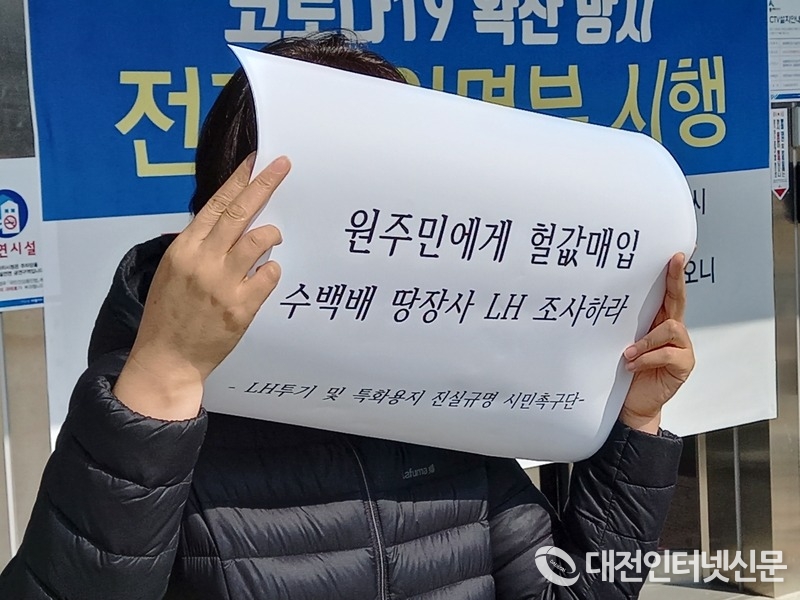 코로나19 확산 방지
시행
원주민에게 헐값매입
수백배 땅장사 LH 조사하라
- LH투기 및 특화용지 진실규명 시민촉구단-
시
오니
연시설
Lafuma
대전인터넷신문